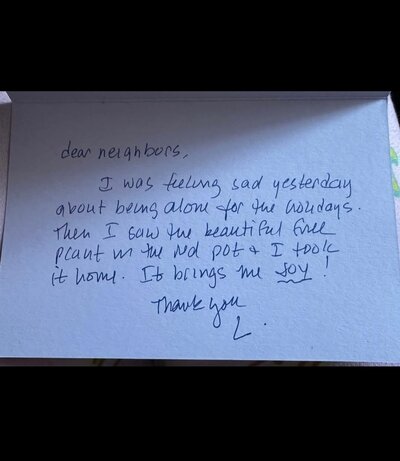 dear neighbors,
I was feeling sad yesterday
about being alone for the holidays.
Then I saw the beautiful free
plant in the red pot & I took
it home. It brings me joy!
Thank you
L.